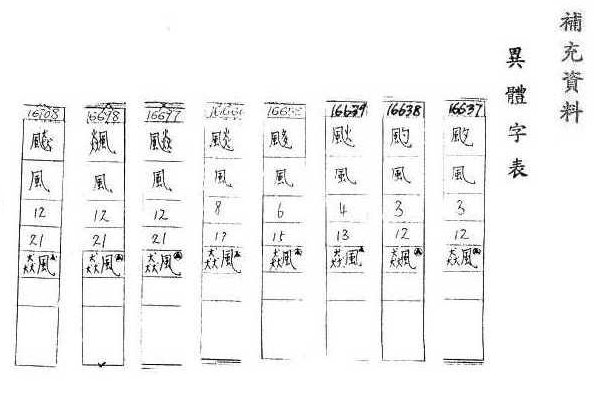 補充資料
異體字表
16637
風
3
12
飆
16638
風
3
12
飆
16639
風
4
13
飆
風
6
15
飆
風
8
17
飆
16697
飈
風
12
21
飆
16698
飇
風
12
21
飆
16708
風
12
21
飆